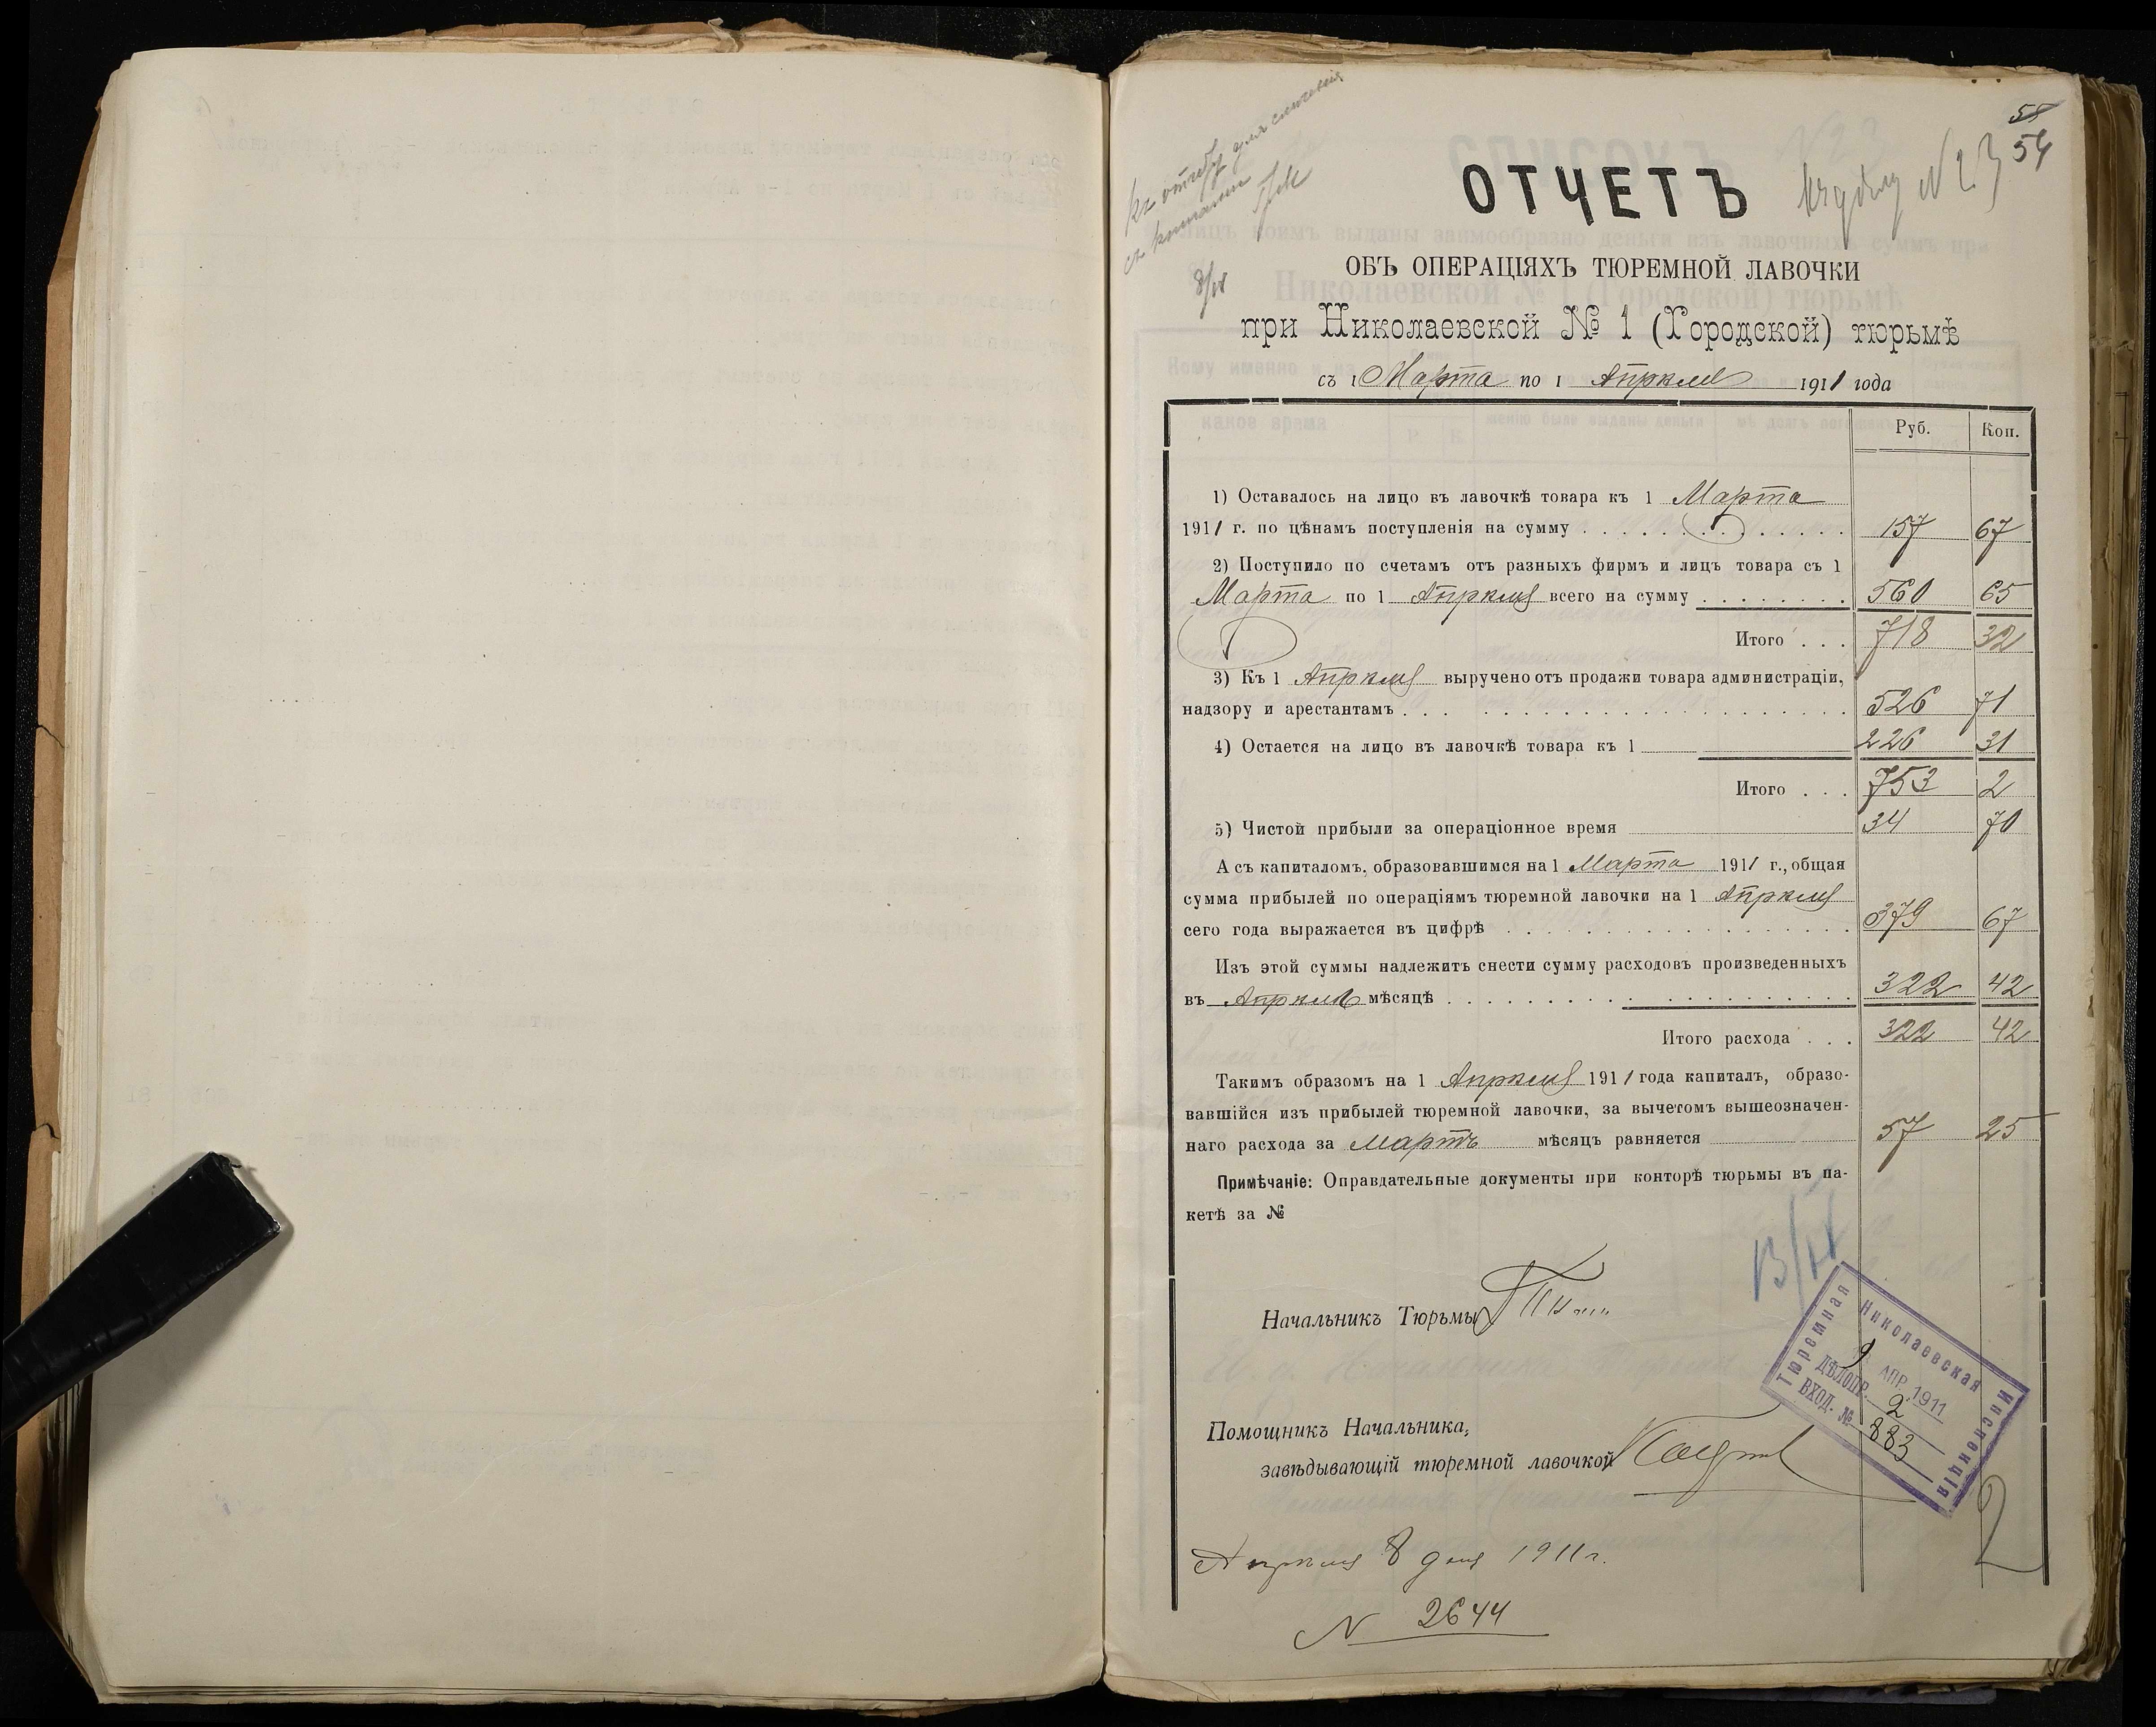 58
54
къ отчету для сличенія
съ
8/IV
ОТЧЕТЪ
№ 23
ОБЪ ОПЕРАЦІЯХЪ ТЮРЕМНОЙ ЛАВОЧКИ
при Николаевской № 1 (Городской) тюрьмѣ
съ 1 Марта по 1 Апрѣля 1911 года
Руб. Коп.
1) Оставалось на лицо въ лавочкѣ товара къ 1 Марта
1911 г. по цѣнамъ поступленія на сумму . . . . . . . . . . . . 157 67
2) Поступило по счетамъ отъ разныхъ фирмъ и лицъ товара съ 1
Марта по 1 Апрѣля всего на сумму . . . . . . . . 560 65
Итого . . . 718 32
3) Къ 1 Апрѣля выручено отъ продажи товара администраціи,
надзору и арестантамъ . . . . . . . . . . . . . . . . . . . . 526 71
4) Остается на лицо въ лавочкѣ товара къ 1 226 31
Итого . . . 753 2
5) Чистой прибыли за операціонное время 34 70
А съ капиталомъ, образовавшимся на 1 Марта 1911 г., общая
сумма прибылей по операціямъ тюремной лавочки на 1 Апрѣля
сего года выражается въ цифрѣ . . . . . . . . . . . . . . . . . 379 67
Изъ этой суммы надлежитъ снести сумму расходовъ произведенныхъ
въ Апрѣлѣ мѣсяцѣ . . . . . . . . . . . . . . . . . . . . 322 42
Итого расхода . . . 322 42
Такимъ образомъ на 1 Апрѣля 1911 года капиталъ, образо-
вавшійся изъ прибылей тюремной лавочки, за вычетомъ вышеозначен-
наго расхода за Мартъ мѣсяцъ равняется 57 25
Примѣчаніе: Оправдательные документы при конторѣ тюрьмы въ па-
кетѣ за №
13/IV
Начальникъ Тюрьмы
Николаевская
Тюремная
Инспекція
9 АПР. 1911
ДѢЛОПР. 2
ВХОД. № 883
Помощникъ Начальника,
завѣдывающій тюремной лавочкой
2
Апрѣля 8 дня 1911 г.
№ 2644